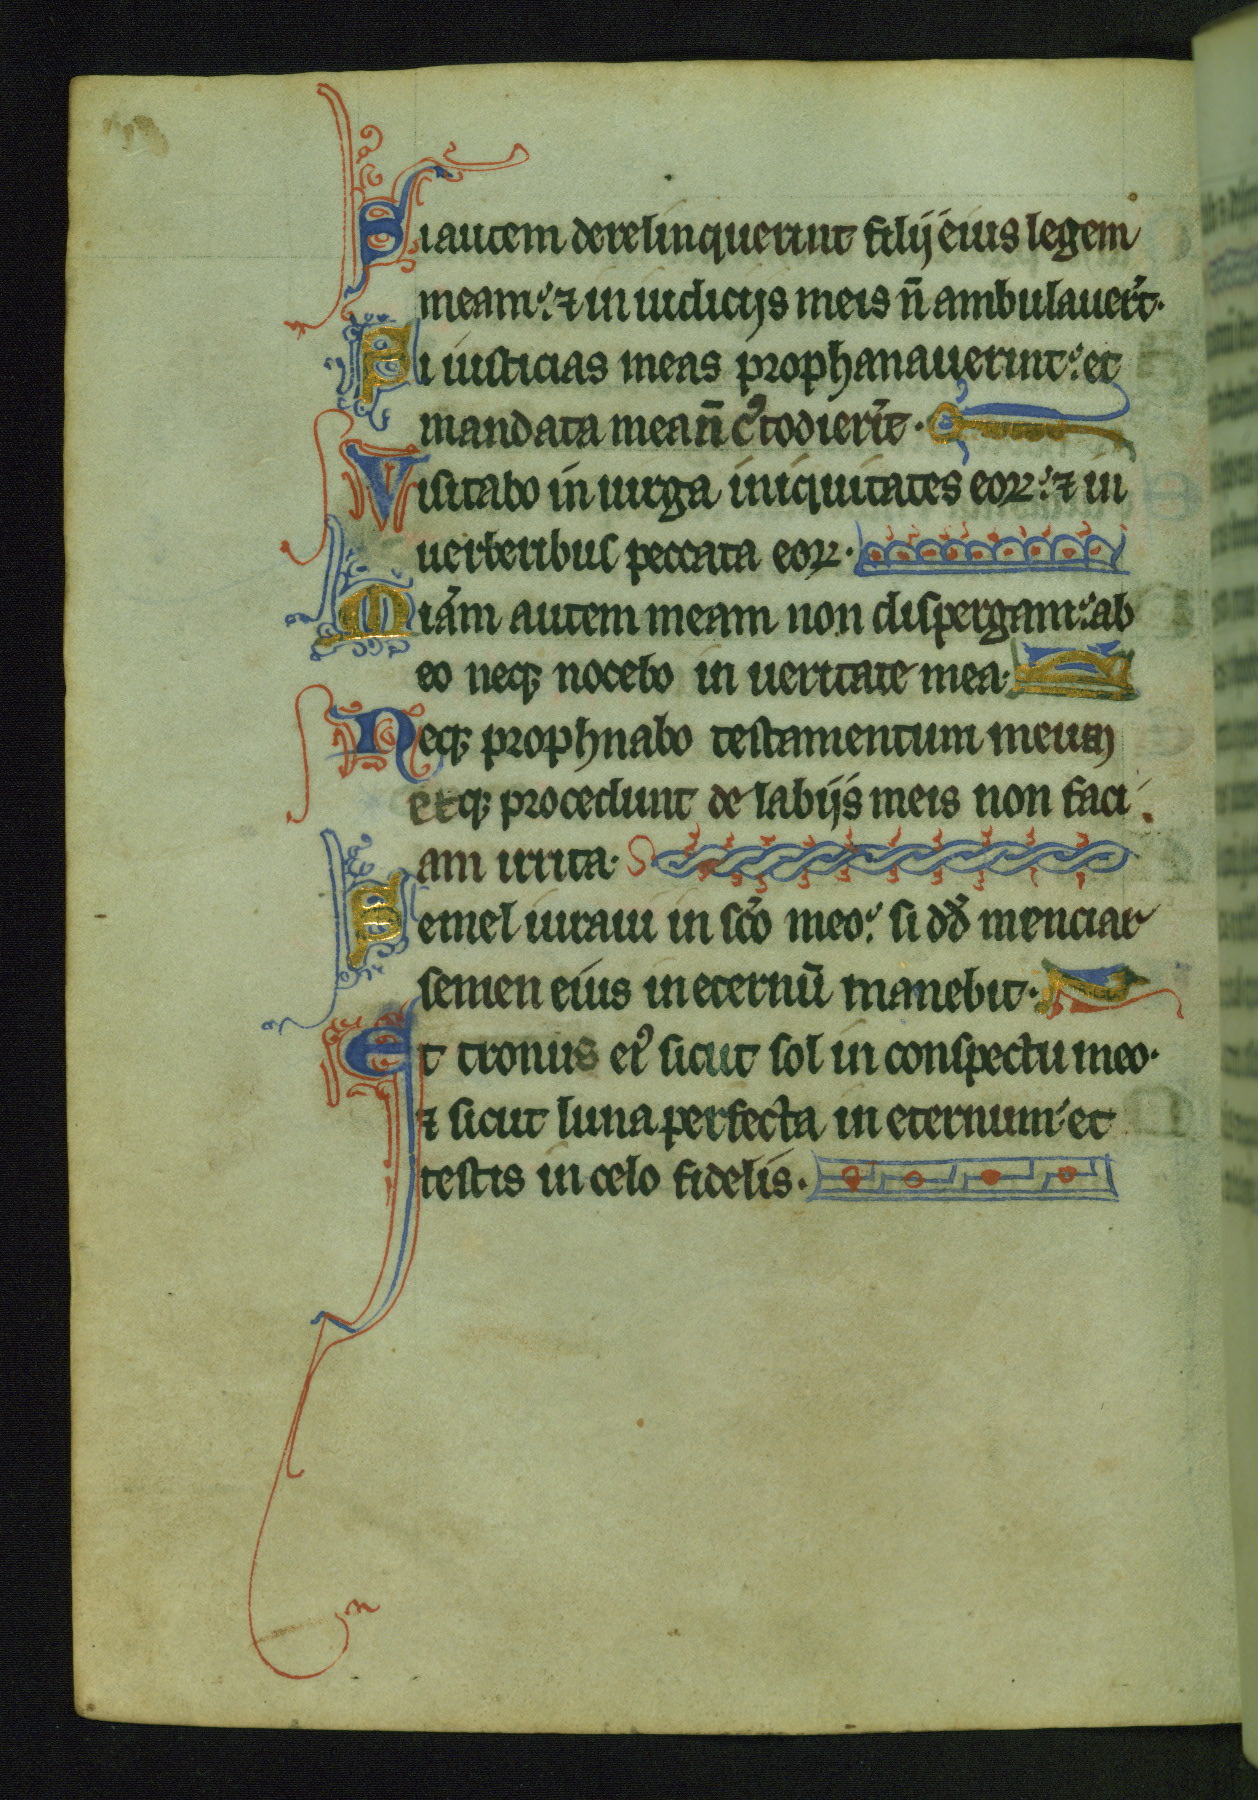 Si autem derelinquerint filij eius legem
meam: ⁊ in iudicijs meis n̄ ambulauer̄t.
Si iusticias meas prophanauerint: et
mandata mea n̄ c᷒todierīt.
Visitabo in uirga iniquitates eoꝝ: ⁊ in
uerberibus peccata eoꝝ.
Miām autem meam non dispergam: ab
eo neqꝫ nocebo in ueritate mea.
Neqꝫ prophnabo testamentum meum
et qꝫ procedunt de labijs meis non faci
am irrita.
Semel iuraui in sc̄o meo: si dd̄ menciar
semen eius in eternū manebit.
Et tronus ei᷒ sicut sol in conspectu meo.
⁊ sicut luna perfecta in eternum: et
testis in celo fidelis.